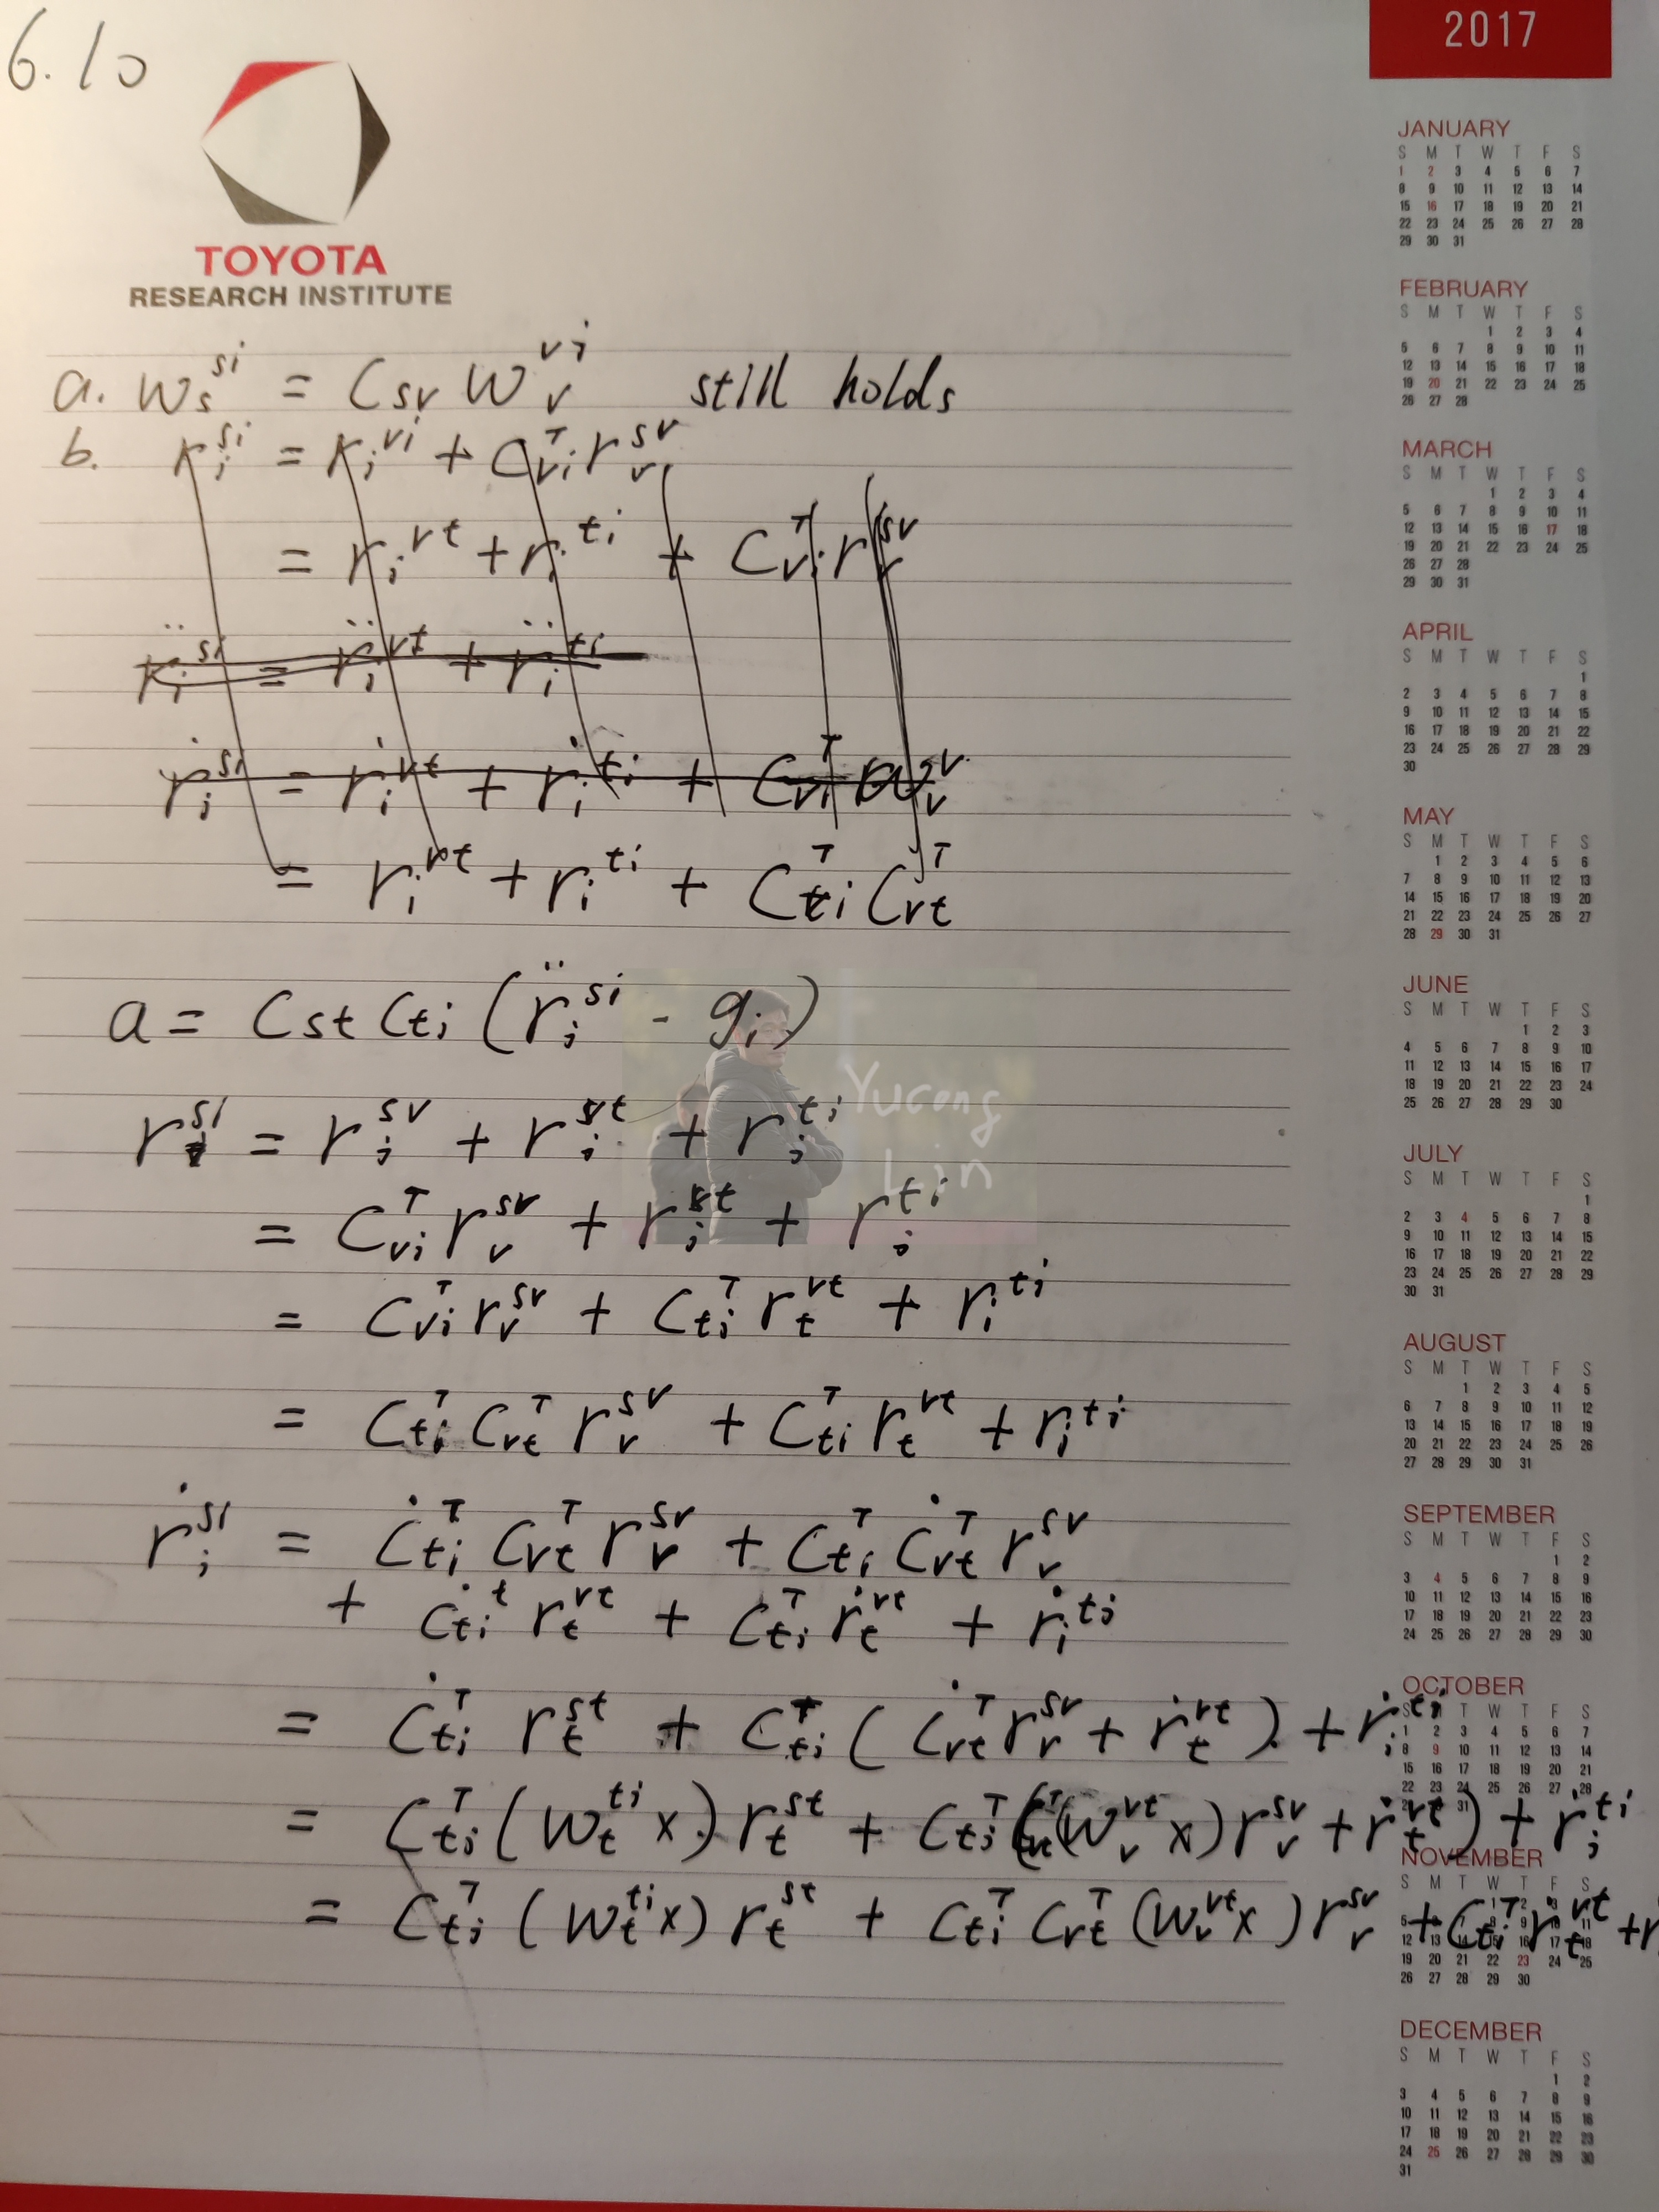 6.10
TOYOTA
RESEARCH INSTITUTE
a. w_s^{si} = C_{sv} w_v^{vi} still holds
b. r_i^{si} = r_i^{vi} + C_{vi}^T r_v^{sv}
= r_i^{vt} + r_i^{ti} + C_{vi}^T r_v^{sv}
r̈_i^{si} = r̈_i^{vt} + r̈_i^{ti}
ṙ_i^{si} = ṙ_i^{vt} + ṙ_i^{ti} + C_{vi}^T
= r_i^{vt} + r_i^{ti} + C_{ti}^T C_{vt}^T
a = C_{st} C_{ti} (r̈_i^{si} - g_i)
r_i^{si} = r_i^{sv} + r_i^{vt} + r_i^{ti}
= C_{vi}^T r_v^{sv} + r_i^{vt} + r_i^{ti}
= C_{vi}^T r_v^{sv} + C_{ti}^T r_t^{vt} + r_i^{ti}
= C_{ti}^T C_{vt}^T r_v^{sv} + C_{ti}^T r_t^{vt} + r_i^{ti}
ṙ_i^{si} = Ċ_{ti}^T C_{vt}^T r_v^{sv} + C_{ti}^T Ċ_{vt}^T r_v^{sv}
+ Ċ_{ti}^t r_t^{vt} + C_{ti}^T ṙ_t^{vt} + ṙ_i^{ti}
= Ċ_{ti}^T r_t^{st} + C_{ti}^T ( Ċ_{vt}^T r_v^{sv} + ṙ_t^{vt} ) + ṙ_i^{ti}
= C_{ti}^T (w_t^{ti} x) r_t^{st} + C_{ti}^T (C_{vt}^T (w_v^{vt} x) r_v^{sv} + ṙ_t^{vt}) + ṙ_i^{ti}
= C_{ti}^T (w_t^{ti} x) r_t^{st} + C_{ti}^T C_{vt}^T (w_v^{vt} x) r_v^{sv} + C_{ti}^T ṙ_t^{vt} + r
Yucong
Lin
2017
JANUARY
S M T W T F S
1 2 3 4 5 6 7
8 9 10 11 12 13 14
15 16 17 18 19 20 21
22 23 24 25 26 27 28
29 30 31
FEBRUARY
S M T W T F S
1 2 3 4
5 6 7 8 9 10 11
12 13 14 15 16 17 18
19 20 21 22 23 24 25
26 27 28
MARCH
S M T W T F S
1 2 3 4
5 6 7 8 9 10 11
12 13 14 15 16 17 18
19 20 21 22 23 24 25
26 27 28
29 30 31
APRIL
S M T W T F S
1
2 3 4 5 6 7 8
9 10 11 12 13 14 15
16 17 18 19 20 21 22
23 24 25 26 27 28 29
30
MAY
S M T W T F S
1 2 3 4 5 6
7 8 9 10 11 12 13
14 15 16 17 18 19 20
21 22 23 24 25 26 27
28 29 30 31
JUNE
S M T W T F S
1 2 3
4 5 6 7 8 9 10
11 12 13 14 15 16 17
18 19 20 21 22 23 24
25 26 27 28 29 30
JULY
S M T W T F S
1
2 3 4 5 6 7 8
9 10 11 12 13 14 15
16 17 18 19 20 21 22
23 24 25 26 27 28 29
30 31
AUGUST
S M T W T F S
1 2 3 4 5
6 7 8 9 10 11 12
13 14 15 16 17 18 19
20 21 22 23 24 25 26
27 28 29 30 31
SEPTEMBER
S M T W T F S
1 2
3 4 5 6 7 8 9
10 11 12 13 14 15 16
17 18 19 20 21 22 23
24 25 26 27 28 29 30
OCTOBER
S T W T F S
1 2 3 4 5 6 7
8 9 10 11 12 13 14
15 16 17 18 19 20 21
22 23 24 25 26 27 28
31
NOVEMBER
S M T W T F S
1 2
5 8 9 11
12 13 14 15 16 17 18
19 20 21 22 23 24 25
26 27 28 29 30
DECEMBER
S M T W T F S
1 2
3 4 5 6 7 8 9
10 11 12 13 14 15 16
17 18 19 20 21 22 23
24 25 26 27 28 29 30
31